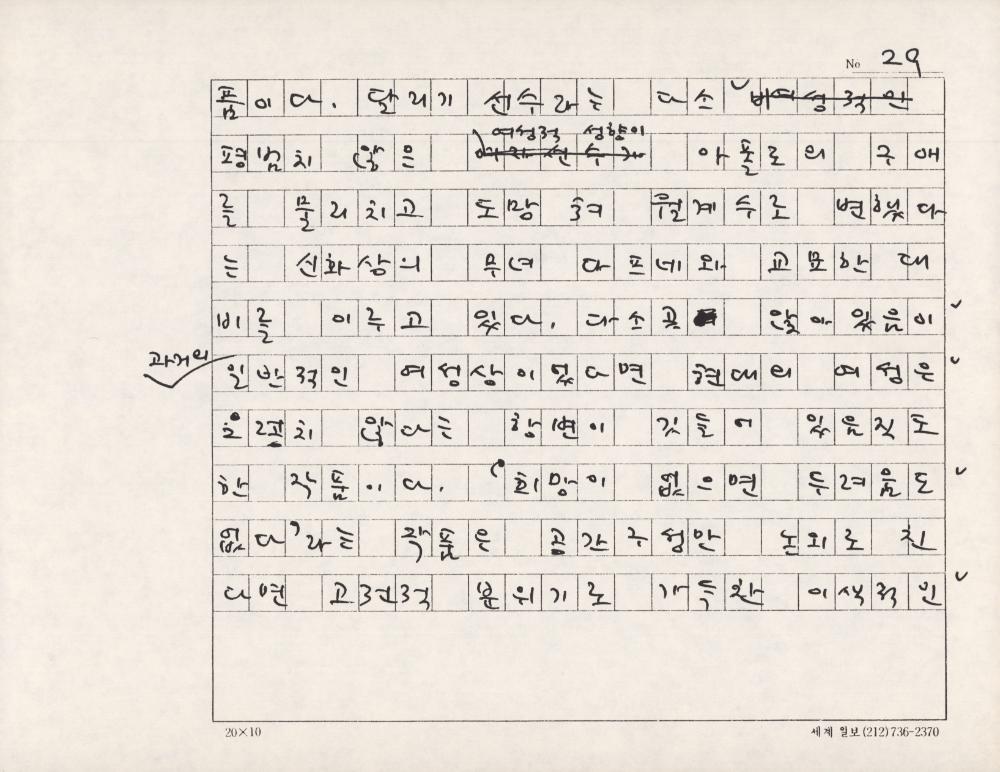 No 29
품이다. 달리기 선수라는 다소 비여성적인
여성적 성향이
평범치 않은 여자 선수가 아폴로의 구애
를 물리치고 도망쳐 월계수로 변했다
는 신화상의 무녀 다프네와 교묘한 대
비를 이루고 있다. 다소곳 앉아 있음이
과거의
일반적인 여성상이었다면 현대의 여성은
호락치 않다는 항변이 깃들어 있음직도
한 작품이다. '희망이 없으면 두려움도
없다'라는 작품은 공간구성만 논외로 친
다면 고전적 분위기로 가득찬 이색적인
20×10
세계일보 (212) 736-2370